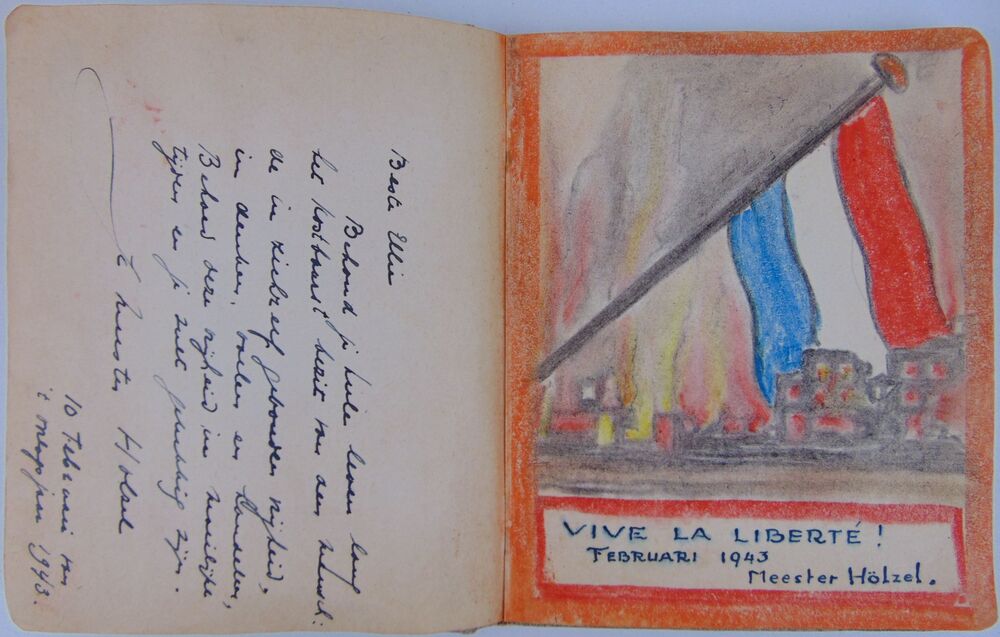 Beste Ellie
Behoud je heele leven lang
het kostbaarst bezit van den mensch:
de in zichzelf gebonden vrijheid,
in denken, voelen en handelen,
Behoud deze vrijheid in moeilijke
tijden en je zult gelukkig zijn.
meester Hölzel
10 Februari van
't oorlogsjaar 1943.
VIVE LA LIBERTÉ!
FEBRUARI 1943
Meester Hölzel.